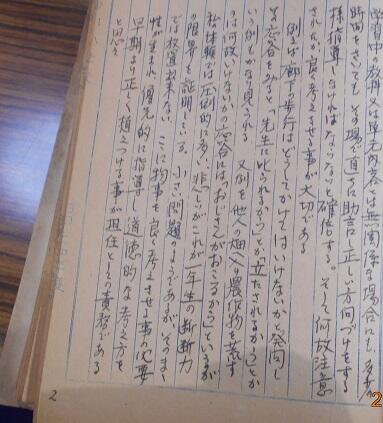 学習中の教科又は単元内容とは無関係な場合にも、多少
時間をさいても、その場で直ちに助言し正しい方向づけをする
様指導しなければならないと確信する。そして何故注意
されたか良く考えさせる事が大切である
例えば廊下歩行はどうしてかけてはいけないかと発問し
その応答をみると「先生に叱られるから」とか「立たされるから」とか
いう例がかなり見うけられる 又例を他人の畑へ入り農作物を荒す
のは何故いけないかの応答には「おじさんがおこるから」というが
私の体験は圧倒的に多い、悲しいがこれが一年生の断断力
の限界を証明している。小さい問題のようであるが、そのまゝ
では放置出来ない。こゝに物事を良く考えさせる事の必要
性が生まれ優先的に指導し道徳的な考え方を
早期より正しく植えつける事が担任としての責務である
と思う
2